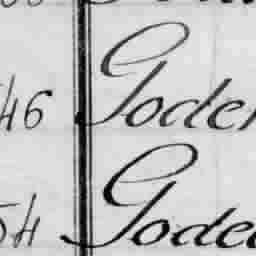 46 Goder
54 Goded